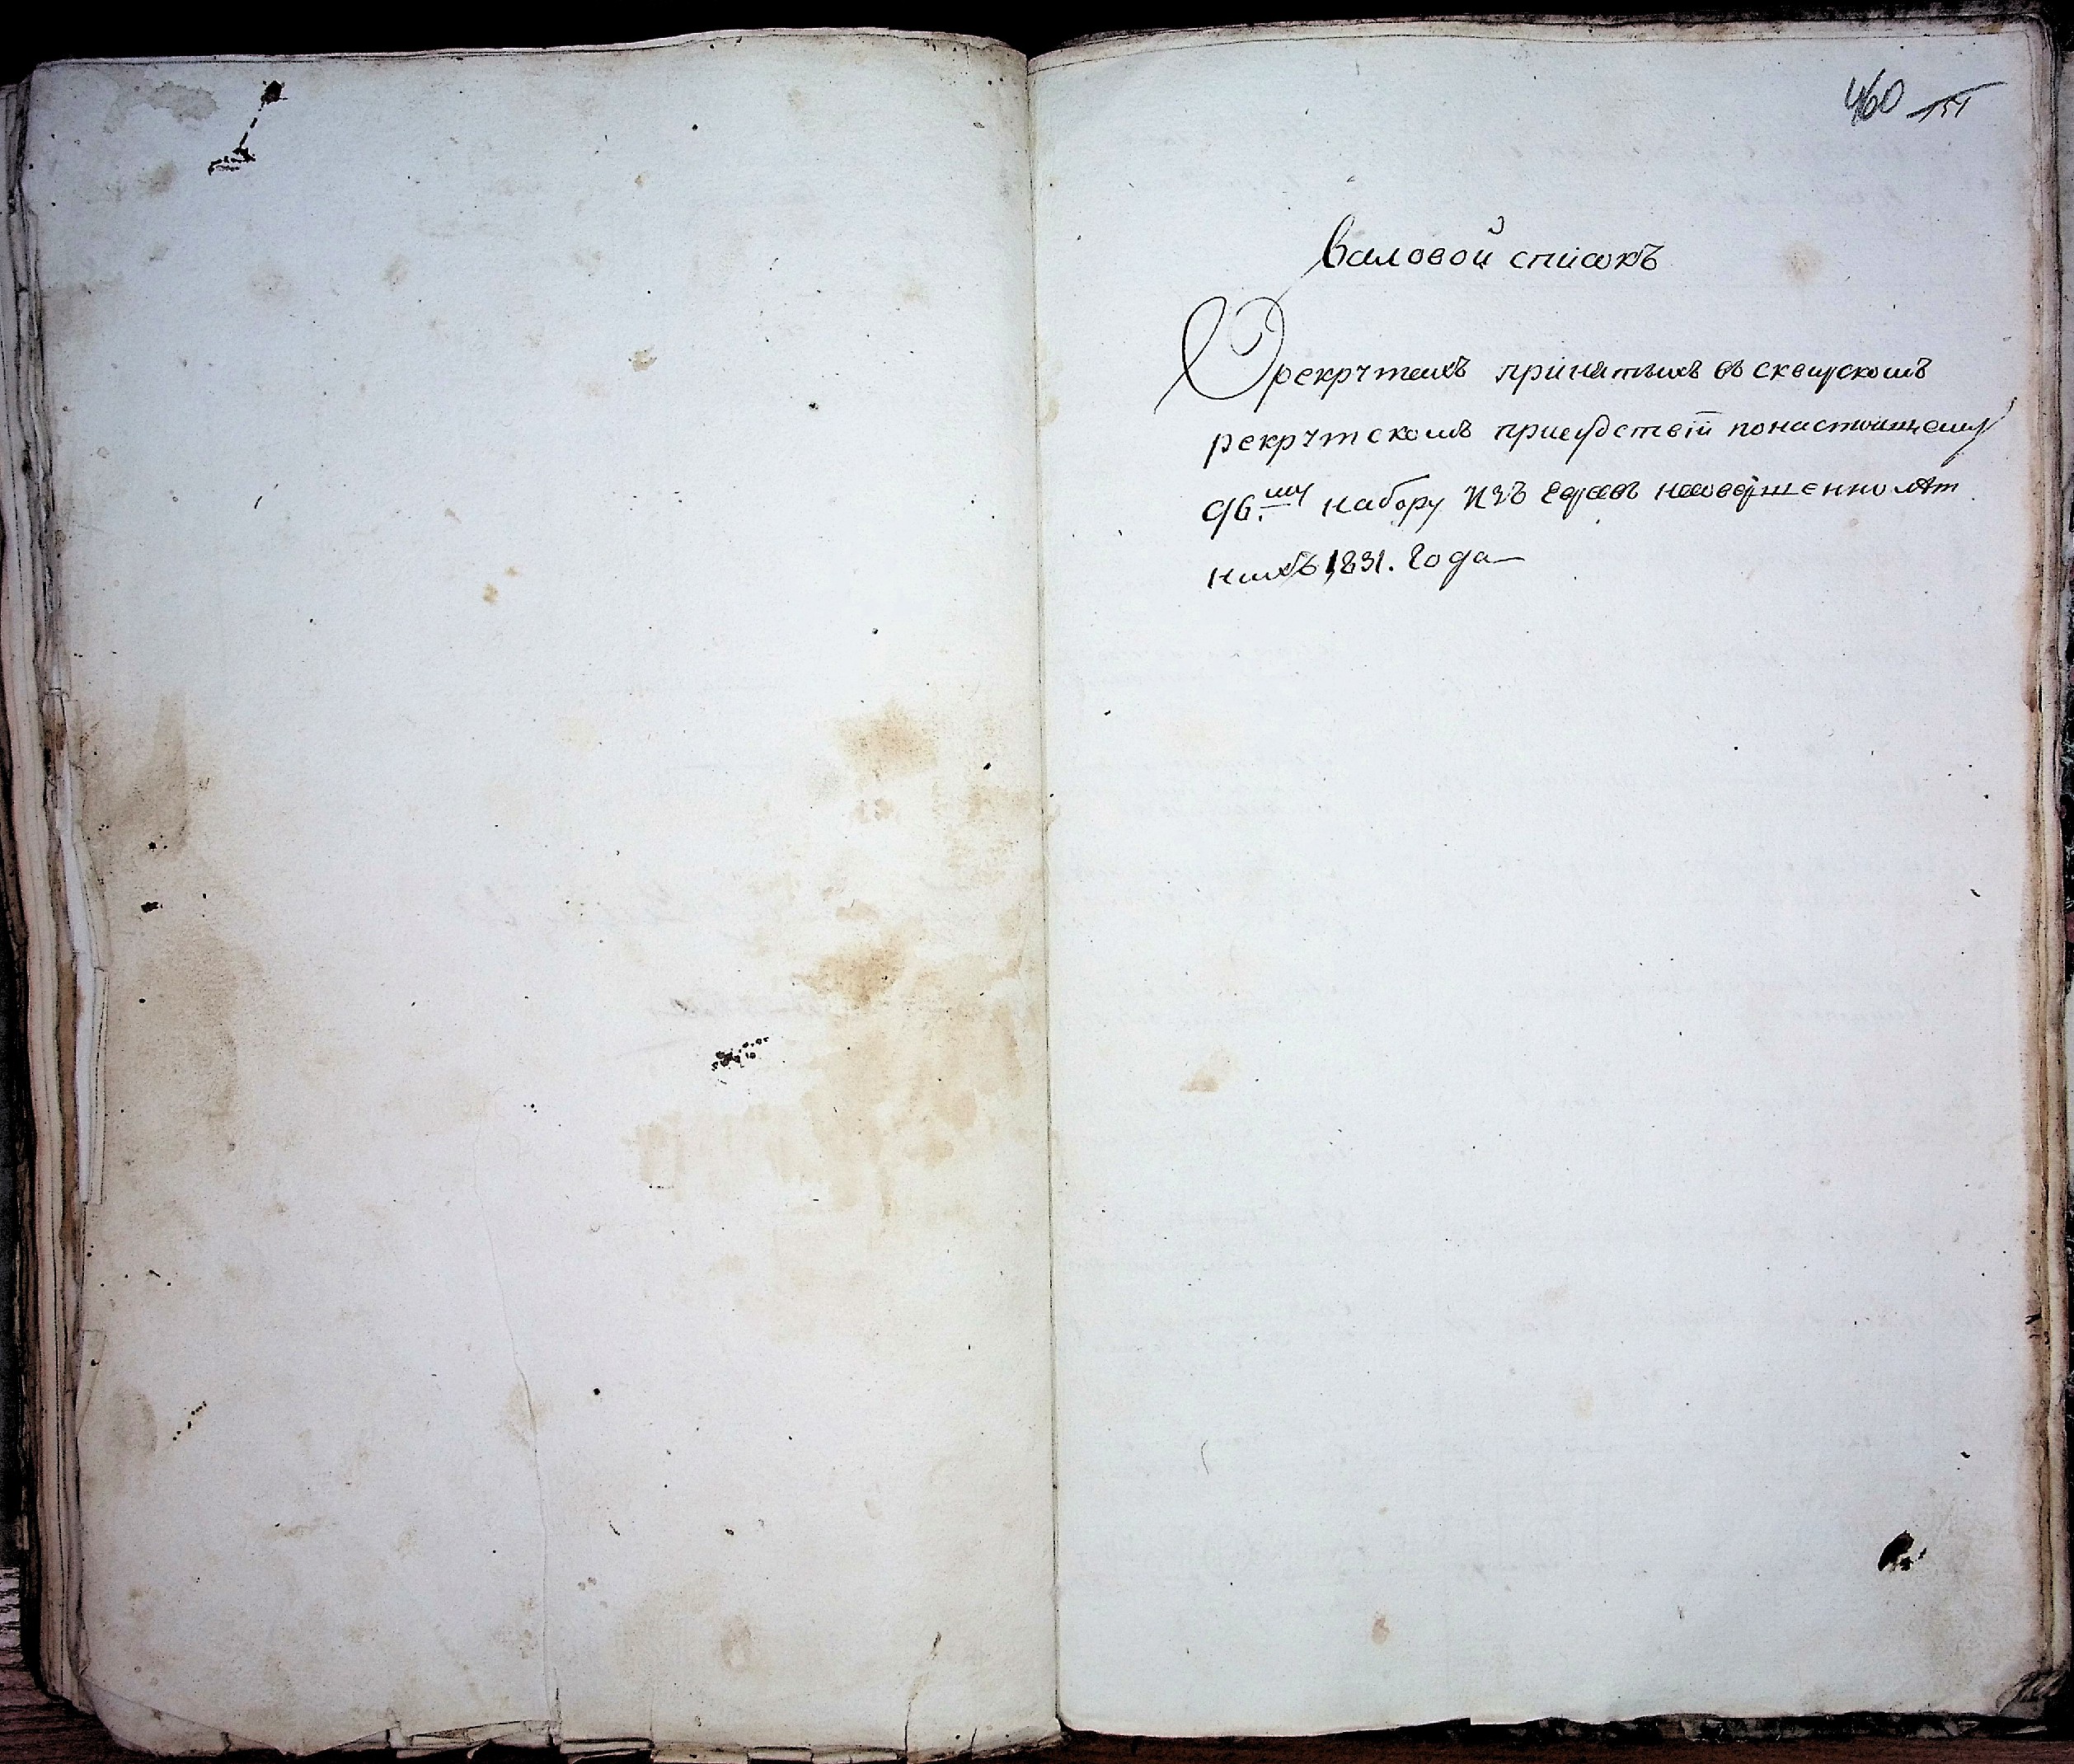 460 151
Валовой списокъ
О рекрутахъ принятыхъ въ сквирскомъ
рекрутскомъ присудствіи понастоящему
96.му набору изъ Евреевъ несовершеннолѣт
нихъ 1831. Года